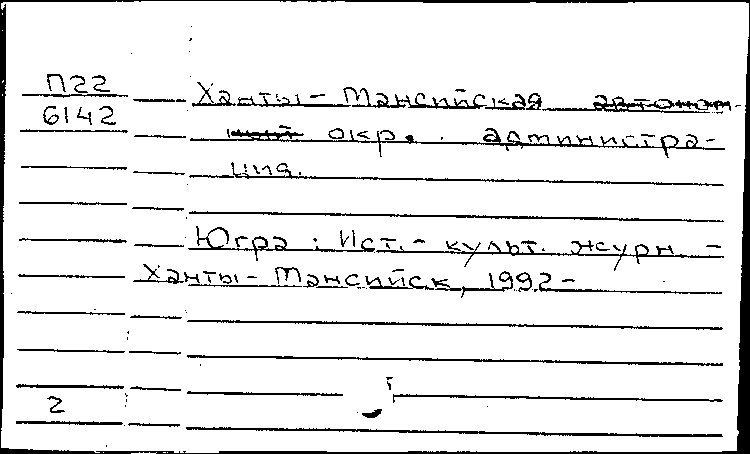 П22
6142
Ханты-Мансийская автоном-
ный окр. администра-
ция.
Югра : Ист.-культ. журн. -
Ханты-Мансийск, 1992-
2